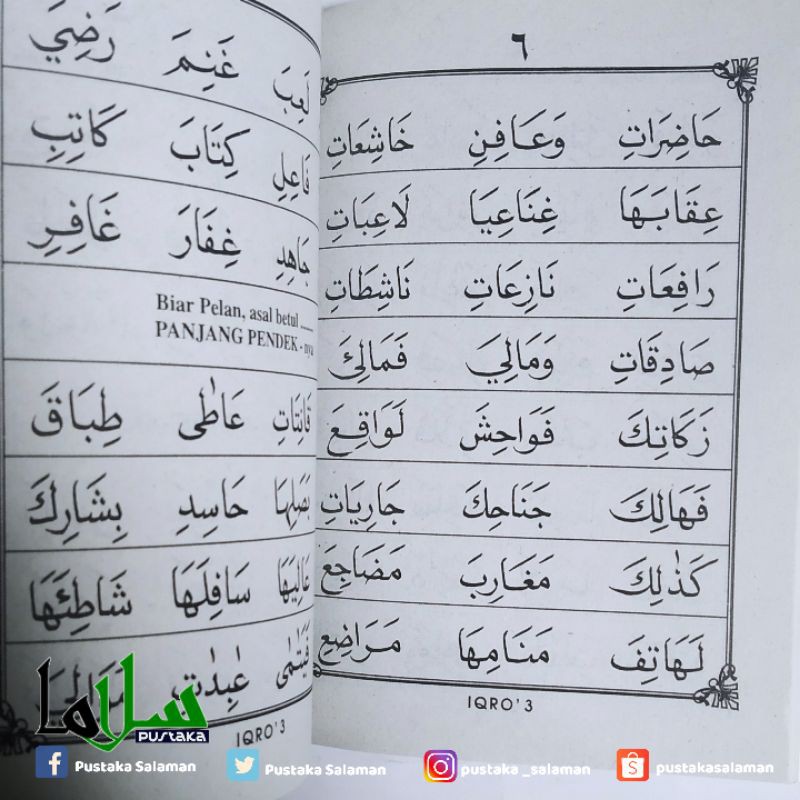 ٦
حَاضِرَاتِ وَعَافِنِ خَاشِعَاتِ
عِقَابَهَا غِنَاعِيَا لَاعِبَاتِ
رَافِعَاتِ نَازِعَاتِ نَاشِطَاتِ
صَادِقَاتِ وَمَالِيَ فَمَالِئَ
زَكَاتِكَ فَوَاحِشَ لَوَاقِعَ
فَهَالِكَ جَنَاحِكَ جَارِيَاتِ
كَذٰلِكَ مَغَارِبَ مَضَاجِعَ
لَهَاتِفَ مَنَامِهَا مَرَاضِعِ
IQRO' 3
لَعِبَ غَنِمَ رَضِيَ
فَاعِلِ كِتَابَ كَاتِبِ
جَاهِدِ غِفَارَ غَافِرِ
Biar Pelan, asal betul ......
PANJANG PENDEK - nya
قَانِتَاتِ عَاطٰى طِبَاقَ
بَصَلِهَا حَاسِدِ بِشَارِكَ
عَالِيَهَا سَافِلَهَا شَاطِئَهَا
عٰبِدٰتِ
IQRO' 3
سلاما
PUSTAKA
Pustaka Salaman
Pustaka Salaman
pustaka _salaman
pustakasalaman